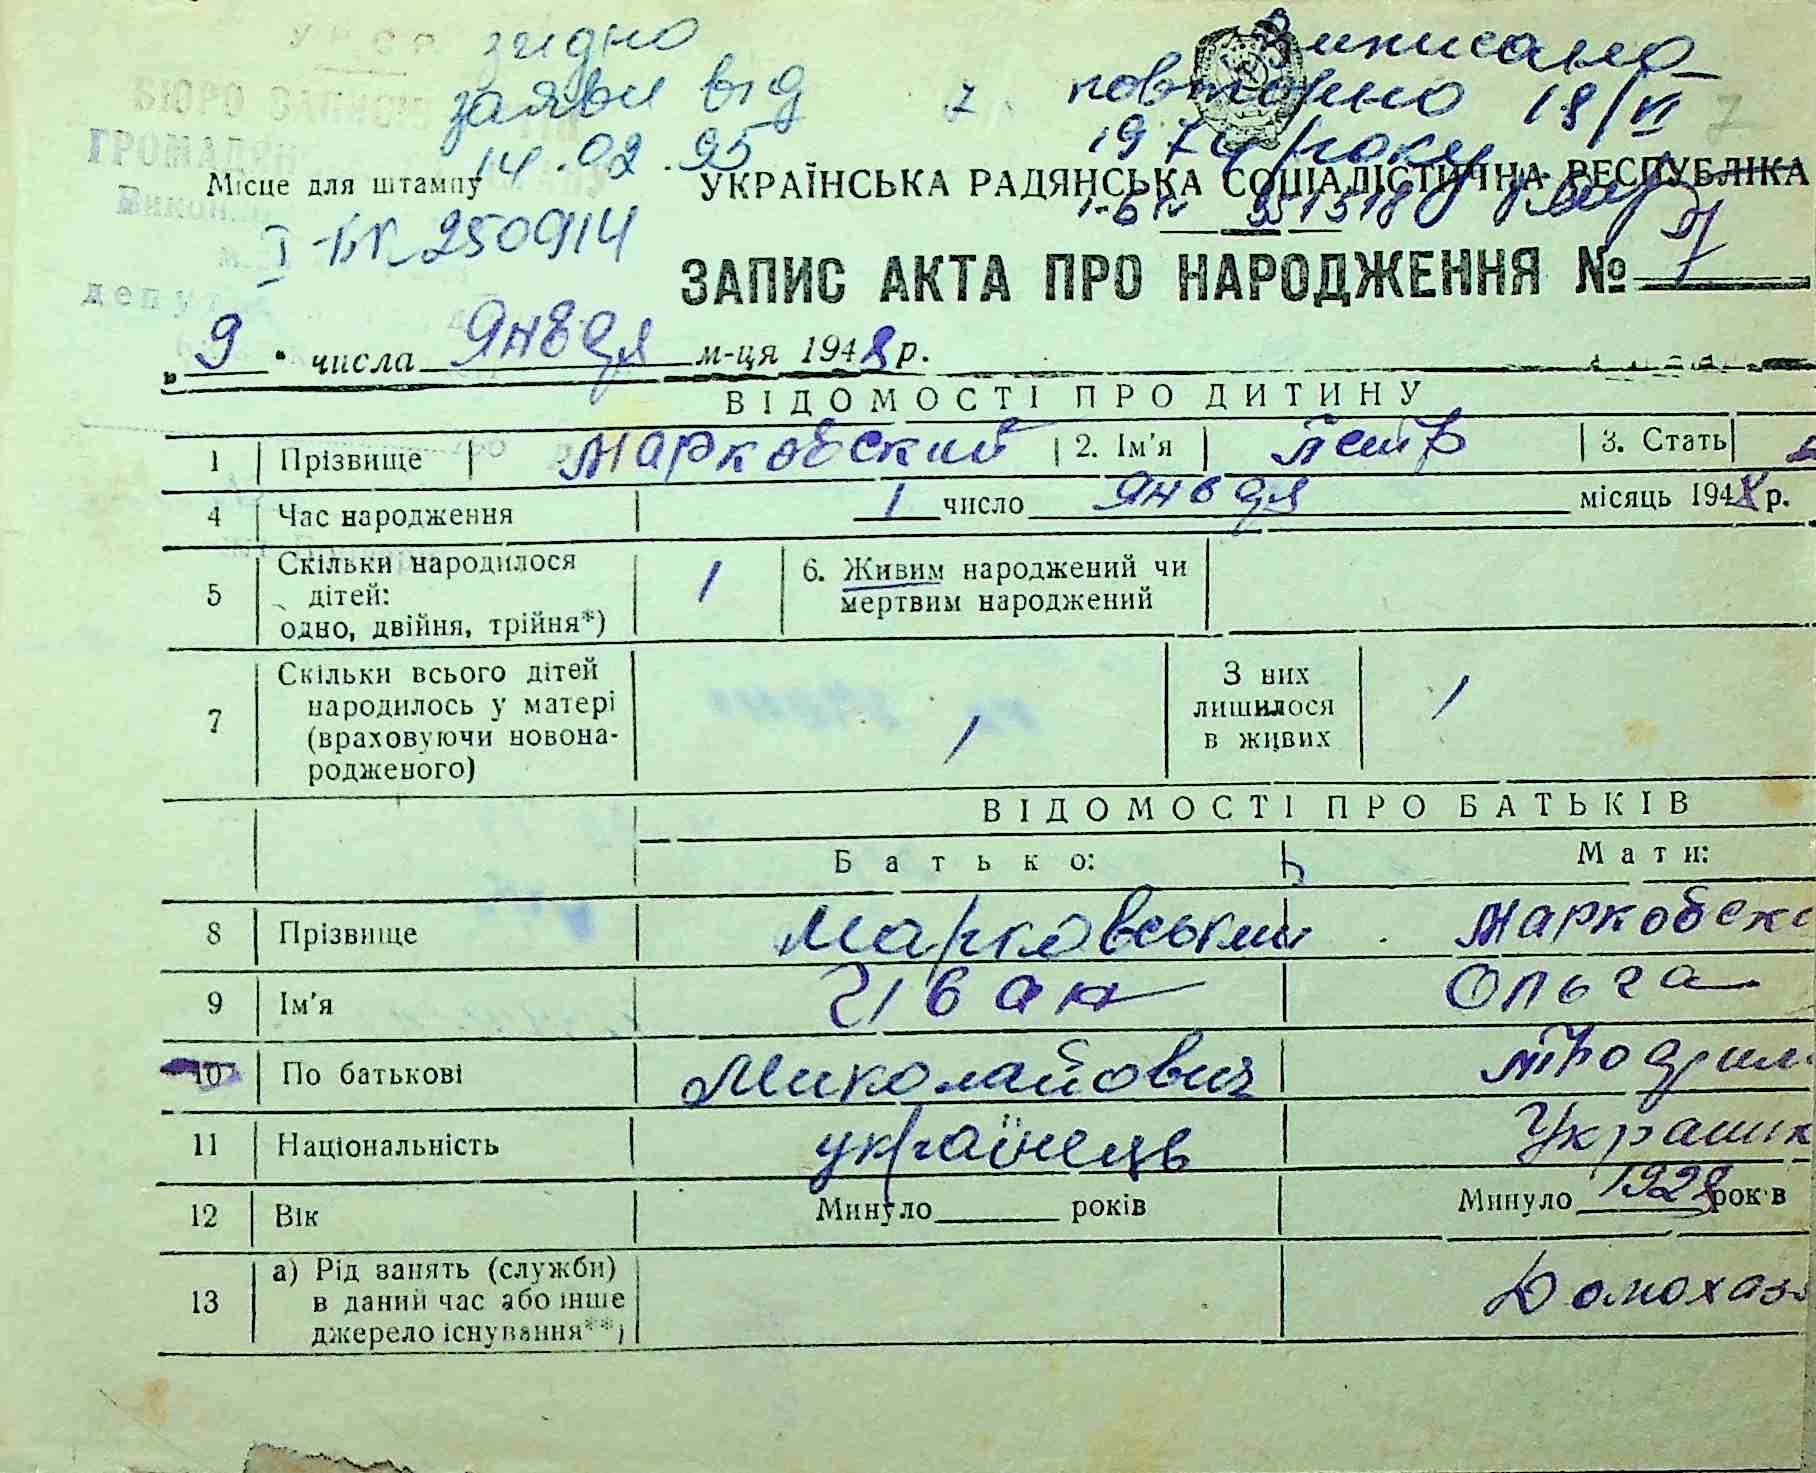 У Р С Р
БЮРО ЗАПИСІВ
ГРОМАДЯН
депу
згідно
заяви від
14.02.95
І-БК 250914
Виписано
повторно 18/VI
1974 року
І-БК 351318
7
7
Місце для штампу
УКРАЇНСЬКА РАДЯНСЬКА СОЦІАЛІСТИЧНА РЕСПУБЛІКА
ЗАПИС АКТА ПРО НАРОДЖЕННЯ № 7
„ 9 " числа Января м-ця 1948 р.
ВІДОМОСТІ ПРО ДИТИНУ
1 Прізвище Марковский 2. Ім'я Петр 3. Стать
4 Час народження 1 число января місяць 1948 р.
5 Скільки народилося дітей: одно, двійня, трійня*) 1 6. Живим народжений чи мертвим народжений
7 Скільки всього дітей народилось у матері (враховуючи новонародженого) 1 З них лишилося в живих 1
ВІДОМОСТІ ПРО БАТЬКІВ
Батько: Мати:
8 Прізвище Марковський Марковска
9 Ім'я Иван Ольга
10 По батькові Миколайович
11 Національність українець Украинк
12 Вік Минуло ______ років Минуло 1928 років
13 а) Рід занять (служби) в даний час або інше джерело існування**) Домохаз